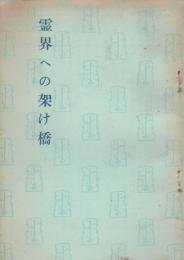 霊界への架け橋